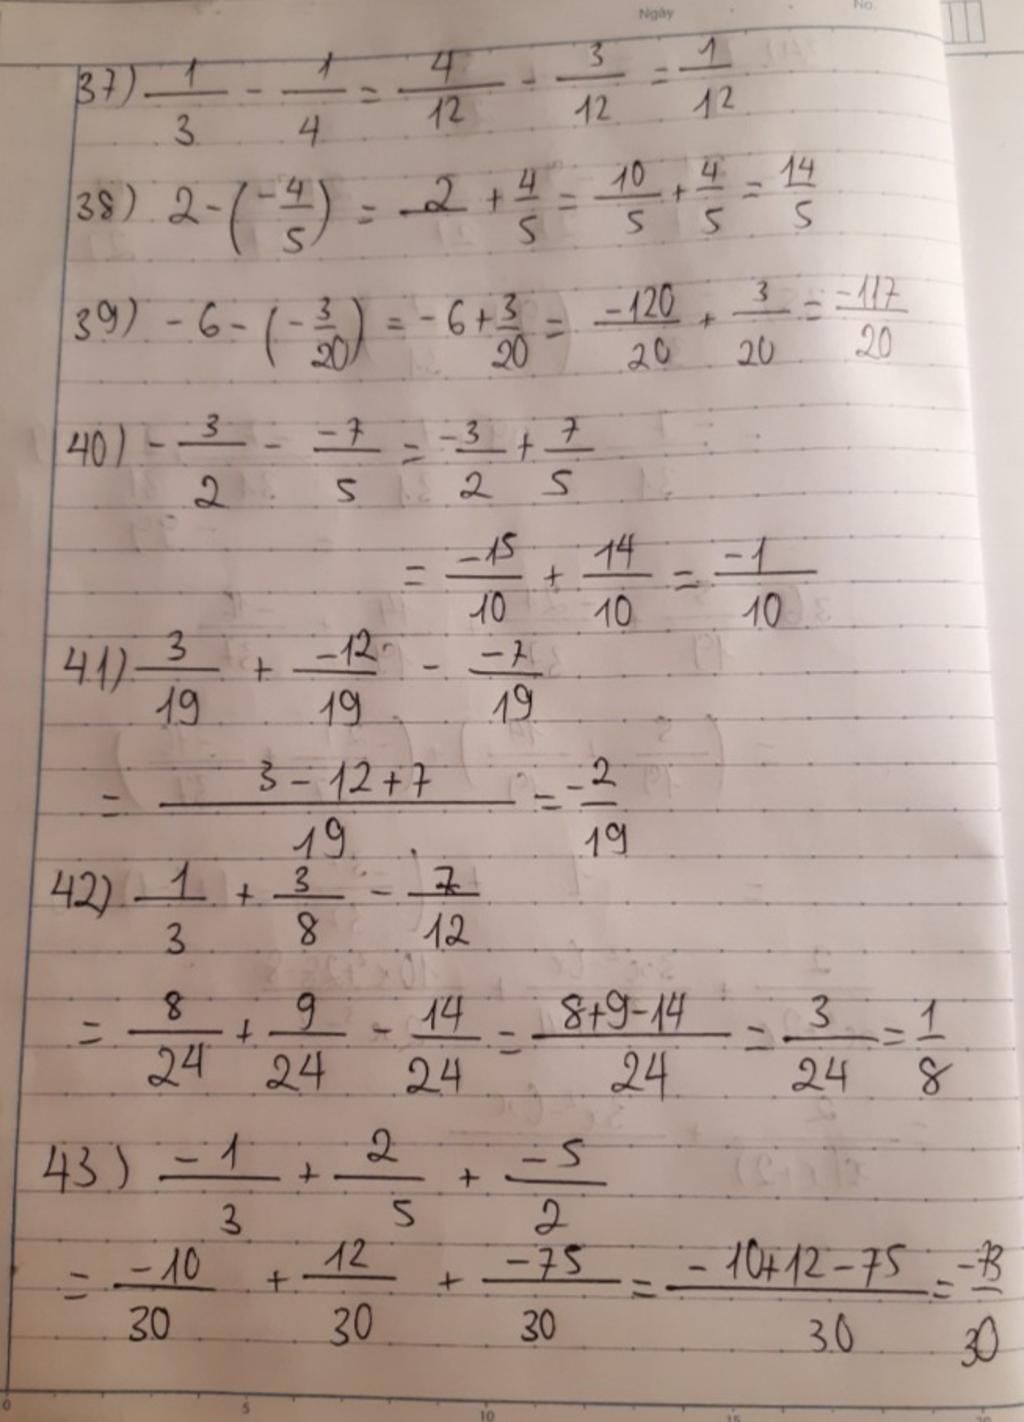 Ngày No.
37) 1/3 - 1/4 = 4/12 - 3/12 = 1/12
38) 2 - (-4/5) = 2 + 4/5 = 10/5 + 4/5 = 14/5
39) - 6 - (-3/20) = - 6 + 3/20 = -120/20 + 3/20 = -117/20
40) - 3/2 - -7/5 = -3/2 + 7/5
= -15/10 + 14/10 = -1/10
41) 3/19 + -12/19 - -7/19
= 3 - 12 + 7/19 = -2/19
42) 1/3 + 3/8 - 7/12
= 8/24 + 9/24 - 14/24 = 8+9-14/24 = 3/24 = 1/8
43) -1/3 + 2/5 + -5/2
= -10/30 + 12/30 + -75/30 = -10+12-75/30 = -73/30
0 5 10 15 20